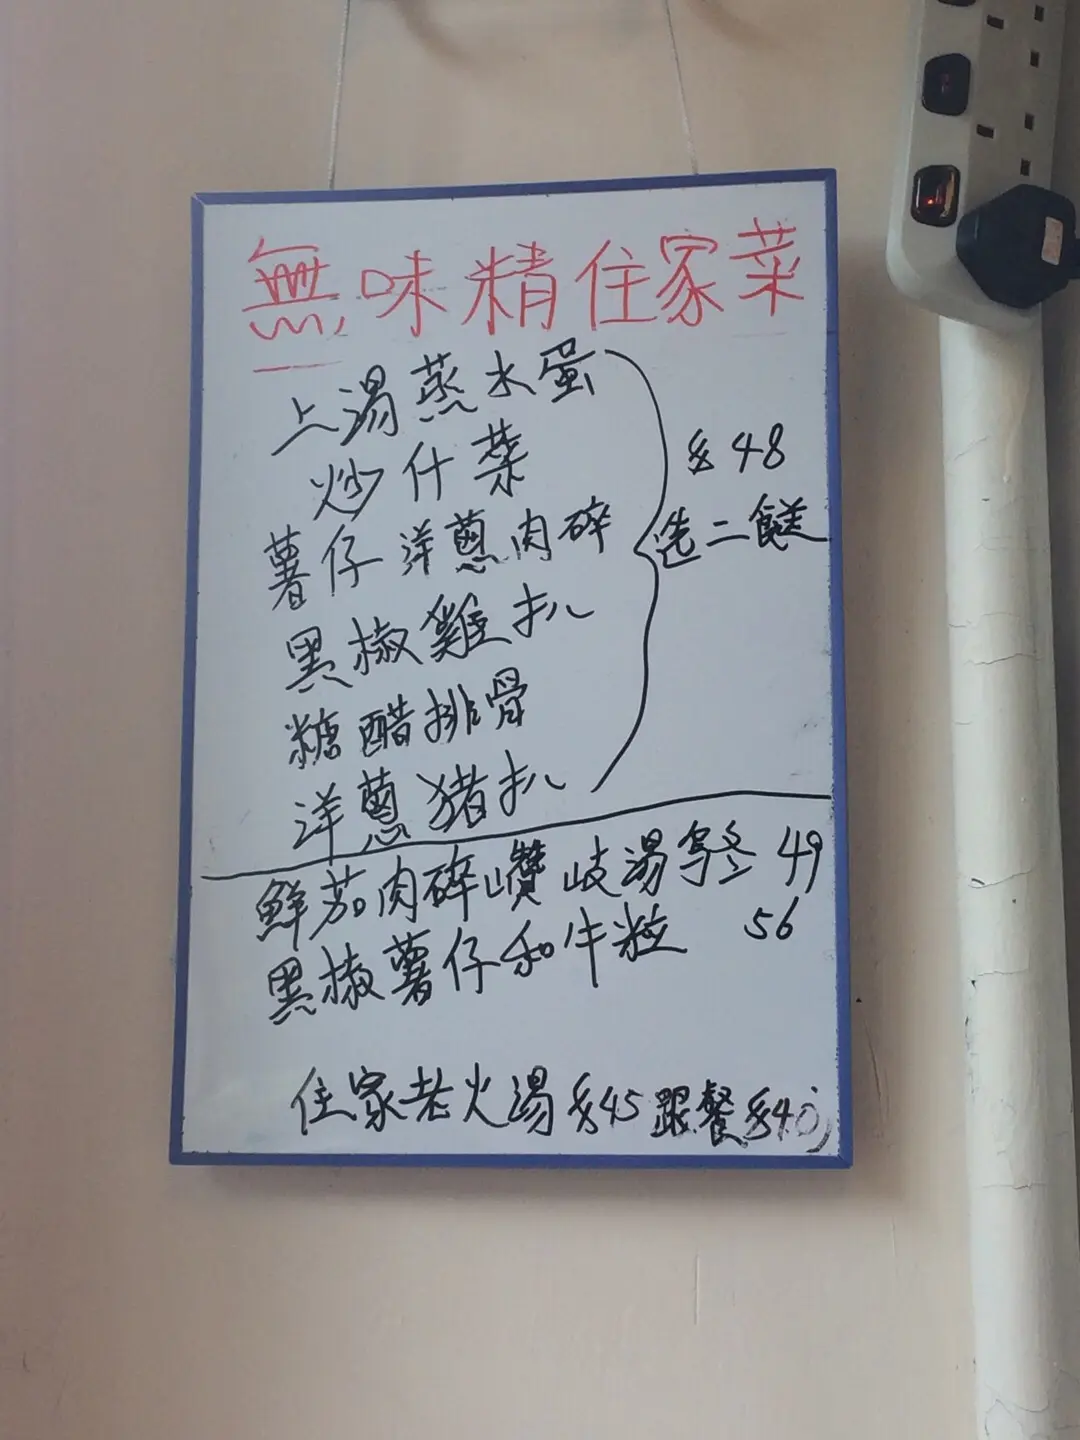 無味精住家菜
上湯蒸水蛋
炒什菜
薯仔洋蔥肉碎
黑椒雞扒
糖醋排骨
洋蔥豬扒
$48
選二餸
鮮茄肉碎讚岐湯烏冬 49
黑椒薯仔和牛粒 56
住家老火湯 $45 跟餐 $40